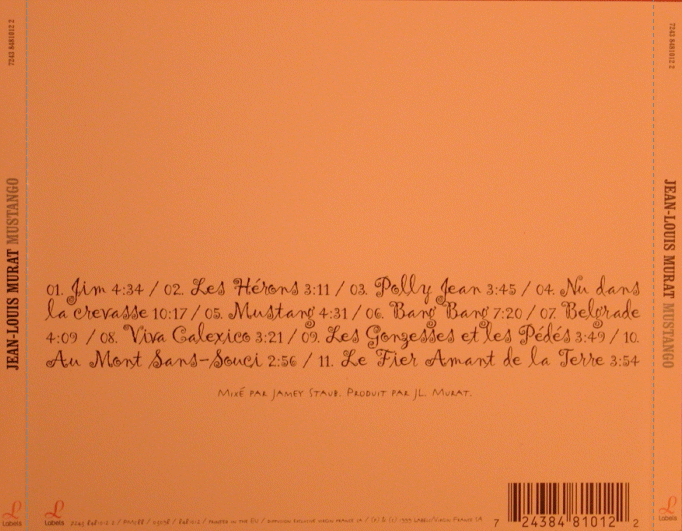 7243 8481012 2
JEAN-LOUIS MURAT MUSTANGO
Labels
01. Jim 4:34 / 02. Les Hérons 3:11 / 03. Polly Jean 3:45 / 04. Nu dans
la crevasse 10:17 / 05. Mustang 4:31 / 06. Bang Bang 7:20 / 07. Belgrade
4:09 / 08. Viva Calexico 3:21 / 09. Les Gonzesses et les Pédés 3:49 / 10.
Au Mont Sans-Souci 2:56 / 11. Le Fier Amant de la Terre 3:54
MIXÉ PAR JAMEY STAUB. PRODUIT PAR JL. MURAT.
Labels
PRINTED IN THE EU
7 24384 81012 2
7243 8481012 2
JEAN-LOUIS MURAT MUSTANGO
Labels